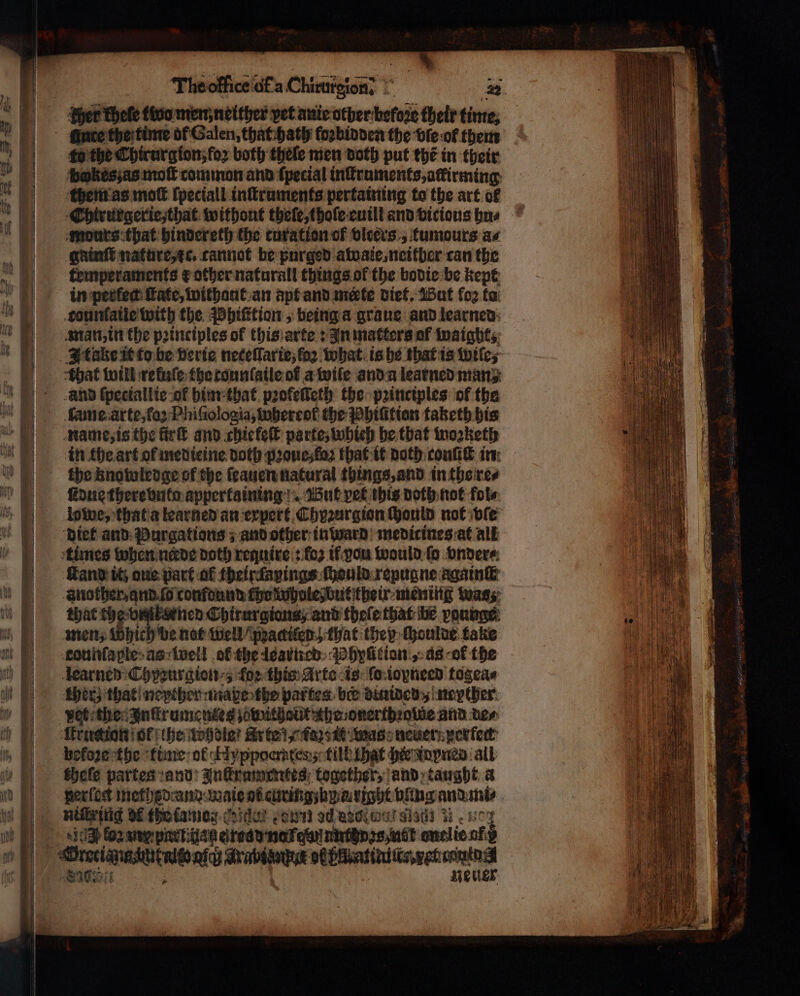 The office of a Chirurgion. 22
ther these two men, neither yet anie other before their time,
since the time of Galen, that hath forbidden the vse of them
to the Chirurgion, for both these men doth put thē in their
bookes, as most common and special instruments, affirming
them as most speciall instruments pertaining to the art of
Chirurgerie, that without these, those euill and vicious hu-
mours that hindereth the curation of vlcers, tumours a-
gainst nature, &c. cannot be purged awaie, neither can the
temperaments & other naturall things of the bodie be kept
in perfect state, without an apt and meete diet. But for to
counsaile with the Phisition, being a graue and learned
man, in the principles of this arte: In matters of waight,
I take it to be verie necessarie, for what is he that is wise,
that will refuse the counsaile of a wise and a learned man?
and speciallie of him that professeth the principles of the
same arte, for Phisiologia, whereof the Phisition taketh his
name, is the first and chiefest parte, which he that worketh
in the art of medicine doth proue, for that it doth consist in
the knowledge of the seauen natural things, and in there-
sidue therevnto appertaining. But yet this doth not fol-
lowe, that a learned an expert Chyrurgion should not vse
diet and Purgations, and other inward medicines at all
times when neede doth require: for if you would so vnder-
stand it, one part of their sayings should repugne against
another, and so confound the whole, but their meaning was,
that the Chirurgions, and these that be younge
men, which be not well practised, that they shoulde take
counsaple as well of the learned Phylition, as of the
learned Chyrurgion, for this Arte is so ioyneed togea-
ther, that neyther maye the partes be diuided, neyther
yet the Instrumentes without the ouerthrowe and de-
struction of the whole Arte, for it was neuer perfect
before the time of Hyppocrates, till that hee ioyned all
these partes and Instrumentes together, and taught a
perfect method and waie of curing, by a right vsing and mi-
nistring of the same,
neuer